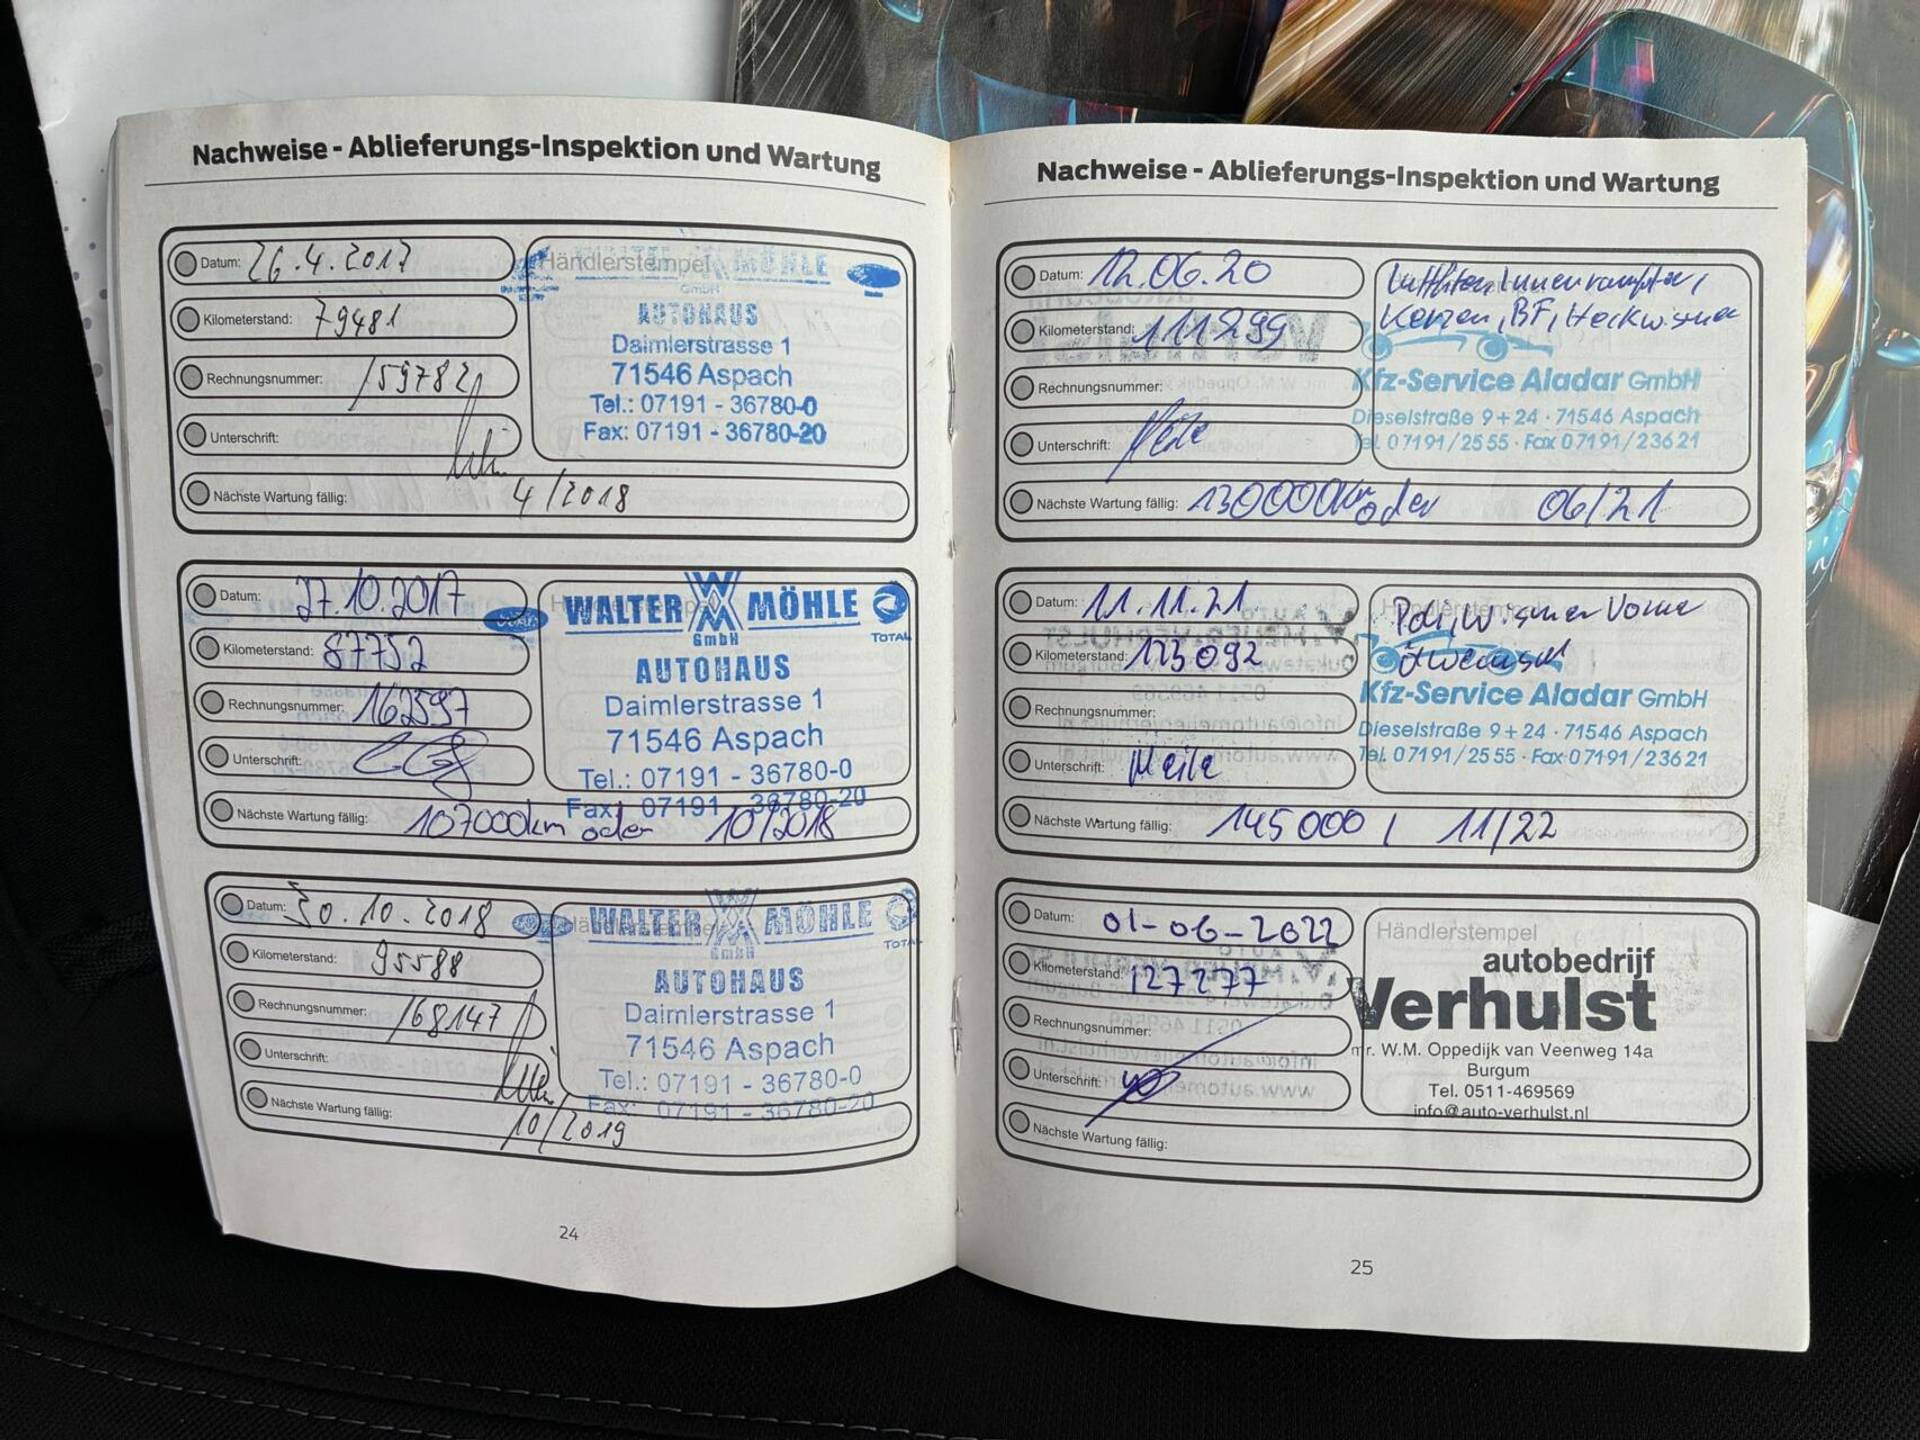 Nachweise - Ablieferungs-Inspektion und Wartung
Datum: 26.4.2017
Kilometerstand: 79481
Rechnungsnummer: 159782
Unterschrift:
Nächste Wartung fällig: 4/2018
Händlerstempel
MÖHLE
GmbH
AUTOHAUS
Daimlerstrasse 1
71546 Aspach
Tel.: 07191 - 36780-0
Fax: 07191 - 36780-20
Datum: 27.10.2017
Kilometerstand: 87752
Rechnungsnummer: 162597
Unterschrift:
Nächste Wartung fällig: 107000km oder 10/2018
WALTER MÖHLE
GmbH
TOTAL
AUTOHAUS
Daimlerstrasse 1
71546 Aspach
Tel.: 07191 - 36780-0
Fax: 07191 - 36780-20
Datum: 30.10.2018
Kilometerstand: 95588
Rechnungsnummer: 168147
Unterschrift:
Nächste Wartung fällig: 10/2019
WALTER MÖHLE
GmbH
TOTAL
AUTOHAUS
Daimlerstrasse 1
71546 Aspach
Tel.: 07191 - 36780-0
Fax: 07191 - 36780-20
24
Nachweise - Ablieferungs-Inspektion und Wartung
Datum: 12.06.20
Kilometerstand: 111299
Rechnungsnummer:
Unterschrift:
Nächste Wartung fällig: 130000km oder 06/21
Kerzen, BF, Heckwischer
Kfz-Service Aladar GmbH
Dieselstraße 9+24 · 71546 Aspach
Tel. 07191/2555 · Fax 07191/23621
Datum: 11.11.21
Kilometerstand: 123092
Rechnungsnummer:
Unterschrift: Meile
Nächste Wartung fällig: 145000 / 11/22
Händlerstempel
Poll, Wischer Vorne
Ölwechsel
Kfz-Service Aladar GmbH
Dieselstraße 9+24 · 71546 Aspach
Tel. 07191/2555 · Fax 07191/23621
Datum: 01-06-2022
Kilometerstand: 127277
Rechnungsnummer:
Unterschrift:
Nächste Wartung fällig:
Händlerstempel
autobedrijf
Verhulst
mr. W.M. Oppedijk van Veenweg 14a
Burgum
Tel. 0511-469569
info@auto-verhulst.nl
25